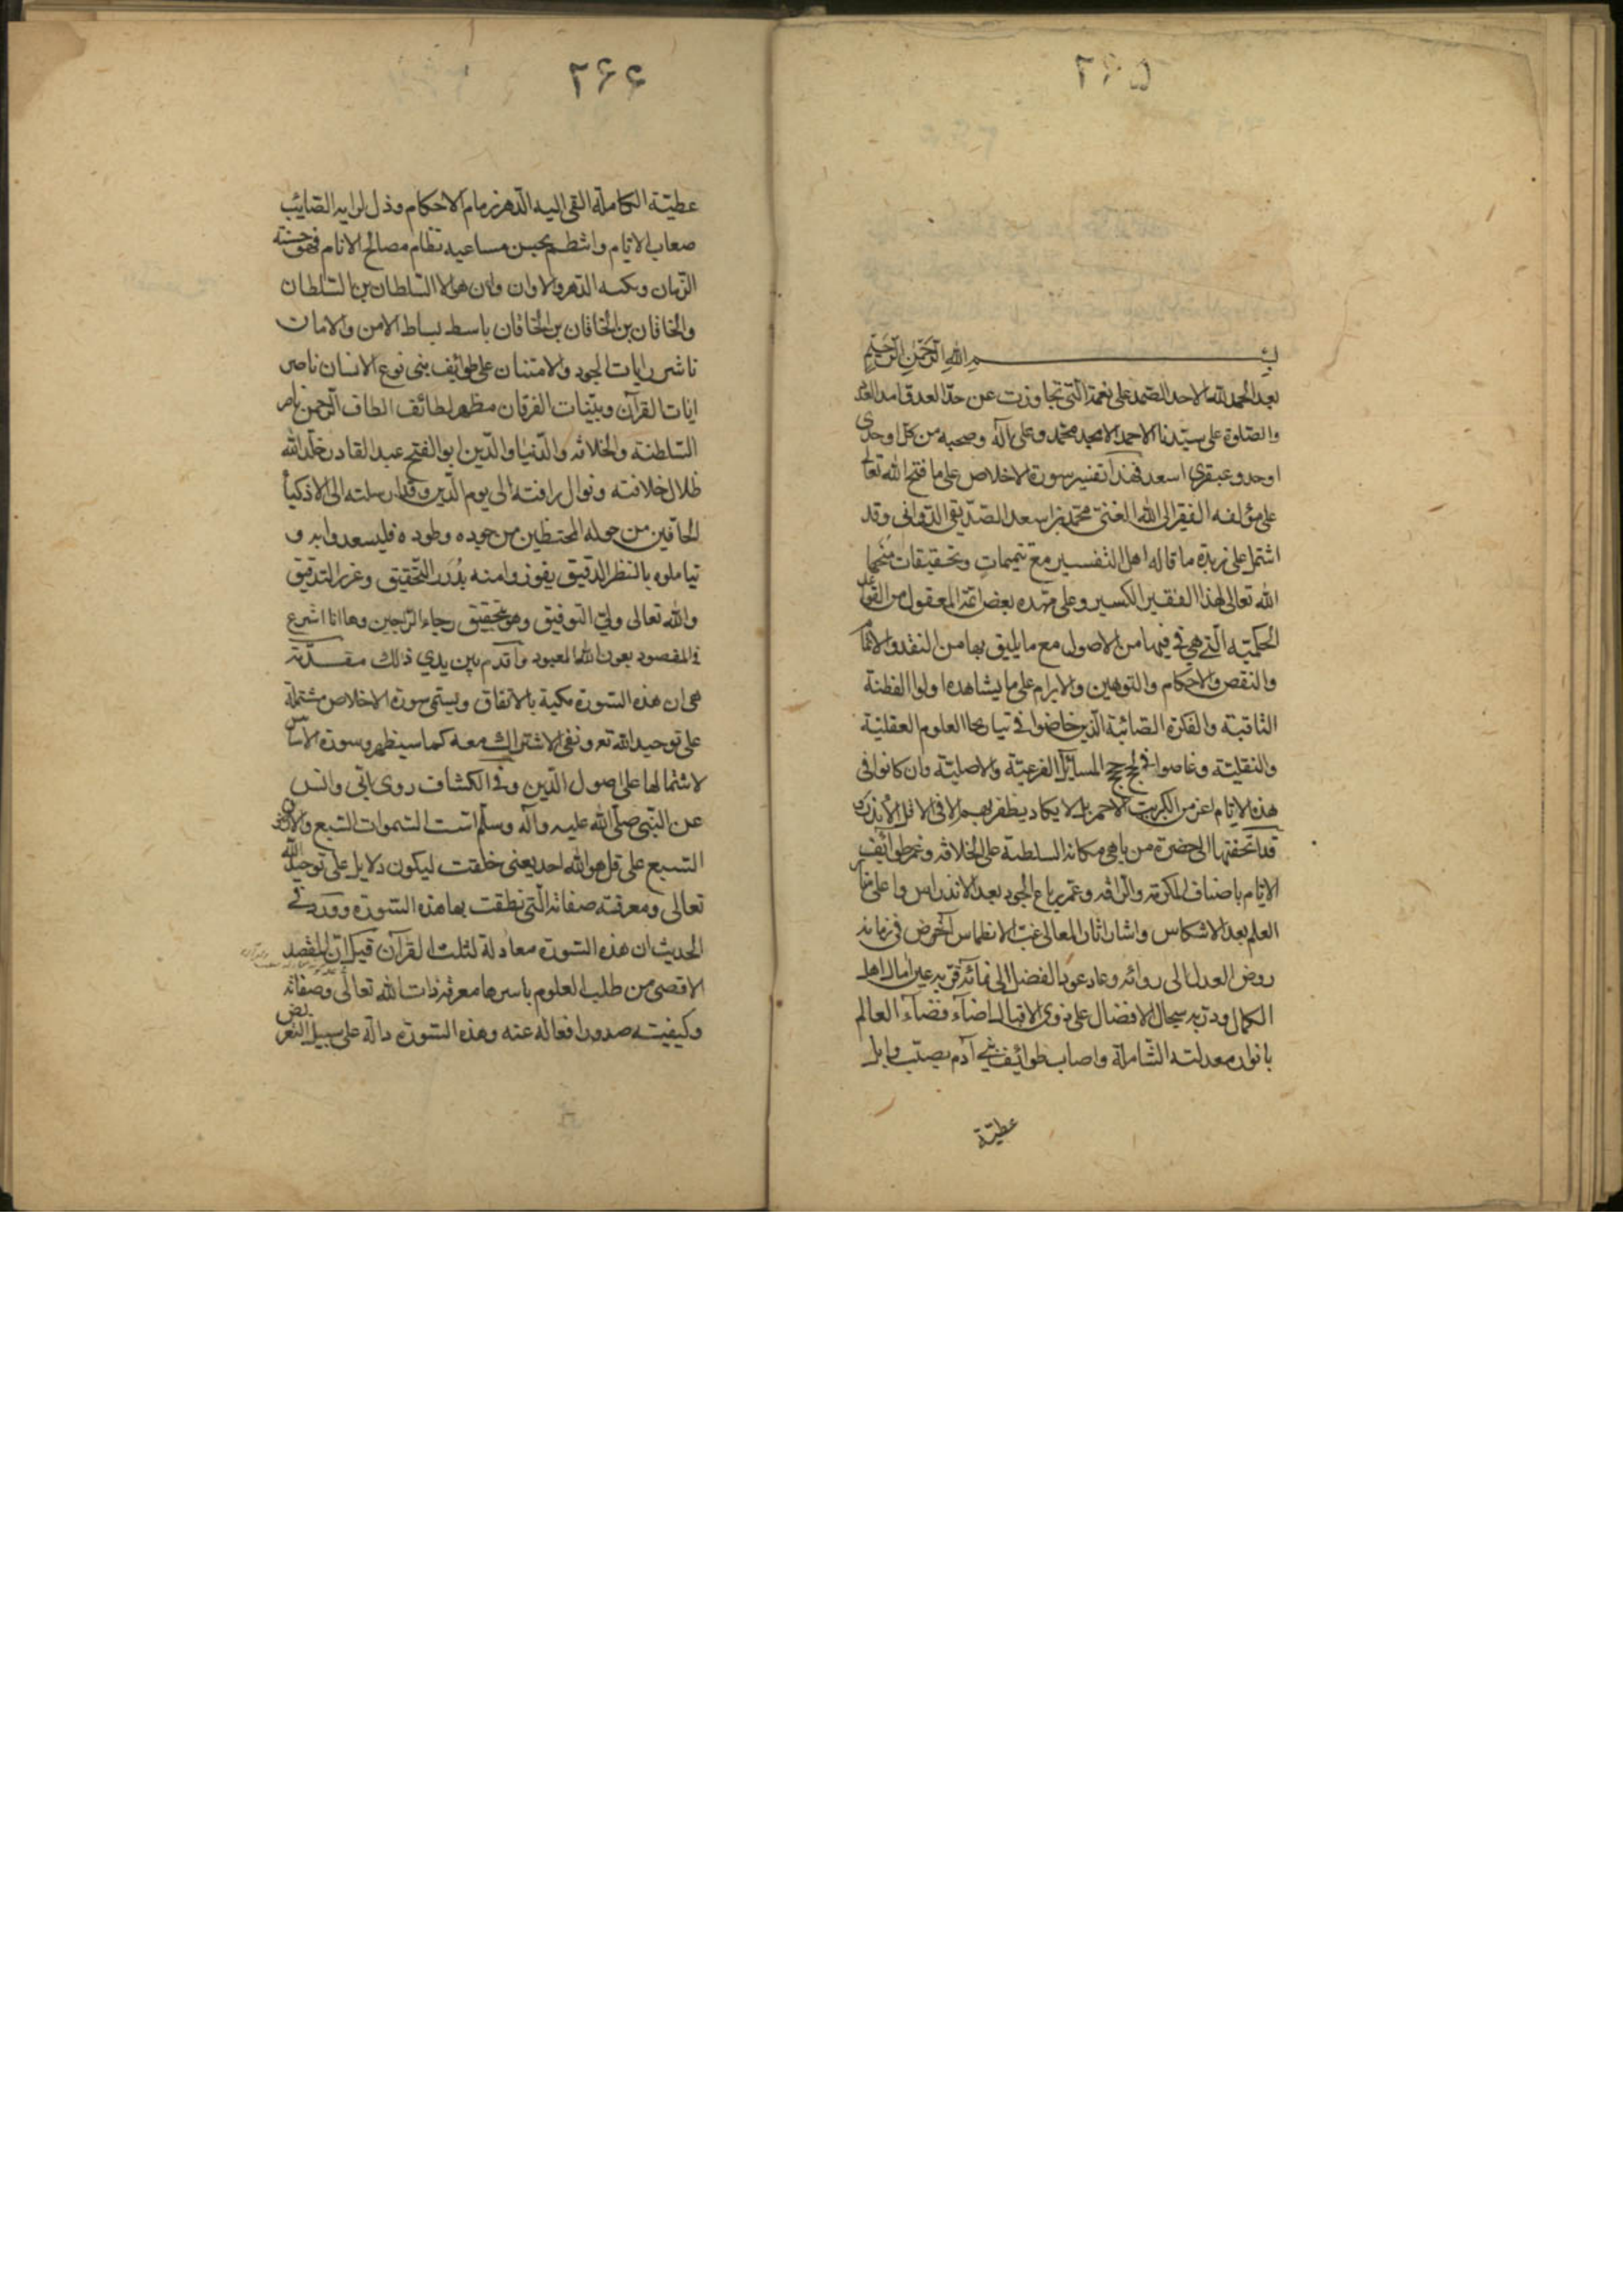 ٢٦٥
بسم الله الرحمن الرحيم
بعد الحمد لله الاحد الصمد على نعمه التى تجاوزت عن حد العد
والصلوة على سيدنا الاحمد الامجد محمد وعلى آله وصحبه من كل اوحدى
اوحد وعبقرى اسعد فهذا تفسير سورة الاخلاص على ما فتح الله تعالى
على مؤلفه الفقير الى الله الغنى محمد بن اسعد الصديقى الدوانى وقد
اشتمل على زبدة ما قاله اهل التفسير مع تتميمات وتحقيقات منحها
الله تعالى لهذا الفقير الكسير وعلى مهده بعض ائمة المعقول من القواعد
الحكمية التى هى فى فيها من الاصول مع ما يليق بها من النقد والاتمام
والنقص والاحكام والتوهين والابرام على ما يشاهده اولوا الفطنة
الثاقبة والفكرة الصائبة الذين خاضوا فى تيار بحار العلوم العقلية
والنقلية وغاصوا فى لجج المسائل الفرعية والاصلية وان كانوا فى
هذه الايام اعز من الكبريت الاحمر بل لا يكاد يظفر بهم الا فى الاقل الاندر
قد اتحفتها الى حضرة من باهى مكانه السلطنة على الخلافه وغمر طوائف
الانام باصناف المكرمة والرافه وعمر رباع الجود بعد الاندراس واعلى منار
العلم بعد الانتكاس واشار اثار المعالى غب الانطماس اخوض فى زمانه
روض العدل الى روائه وعاد عود الفضل الى نمائه قر به عين امال اهل
الكمال ودر به سجال الافضال على ذوى الاقبال اضآء فضآء العالم
بانوار معدلته الشاملة واصاب طوائف بنى آدم بصيب وابل
عطية
٢٦٦
عطيته الكاملة القى اليه الدهر زمام الاحكام وذل لرايه الصايب
صعاب الايام وانتظم بحسن مساعيه نظام مصالح الانام فهو حسنة
الزمان وبكته الدهر والاوان وابن هولا السلطان بن السلطان
والخاقان بن الخاقان بن الخاقان باسط بساط الامن والامان
ناشر رايات الجود والامتنان على طوائف بنى نوع الانسان ناصر
ايات القرآن وبينات الفرقان مظهر لطائف الطاف الرحمن ناصر
السلطنة والخلافه والدنيا والدين ابو الفتح عبد القادر خلد الله
ظلال خلافته ونوال رافته الى يوم الدين وقد ارسلته الى الاذكيآء
الحافين من حوله المحتظين من جوده وطوده فليسعدوا به و
تياملوه بالنظر الدقيق يفوزوا منه بدرر التحقيق وغرر التدقيق
والله تعالى ولى التوفيق وهو بتحقيق رجاء الراجين وها انا اشرع
فى المقصود بعون الله المعبود واقدم بين يدي ذلك مقدمة
هى ان هذه السورة مكية بالاتفاق ويسمى سورة الاخلاص مشتملة
على توحيد الله تع ونفى الاشتراك معه كما سيظهر وسورة الاساس
لاشتمالها على اصول الدين وفى الكشاف روى ابى وانس
عن النبى صلى الله عليه وآله وسلم اسست السموات السبع والارضون
السبع على قل هو الله احد يعنى خلقت ليكون دلايل على توحيد الله
تعالى ومعرفة صفاته التى نطقت بها هذه السورة وورد فى
الحديث ان هذه السورة معادلة لثلث القرآن قيل ان المقصد
الاقصى من طلب العلوم باسرها معرفة ذات الله تعالى وصفاته
وكيفيته صدور افعاله عنه وهذه السورة دالة على سبيل التعريض